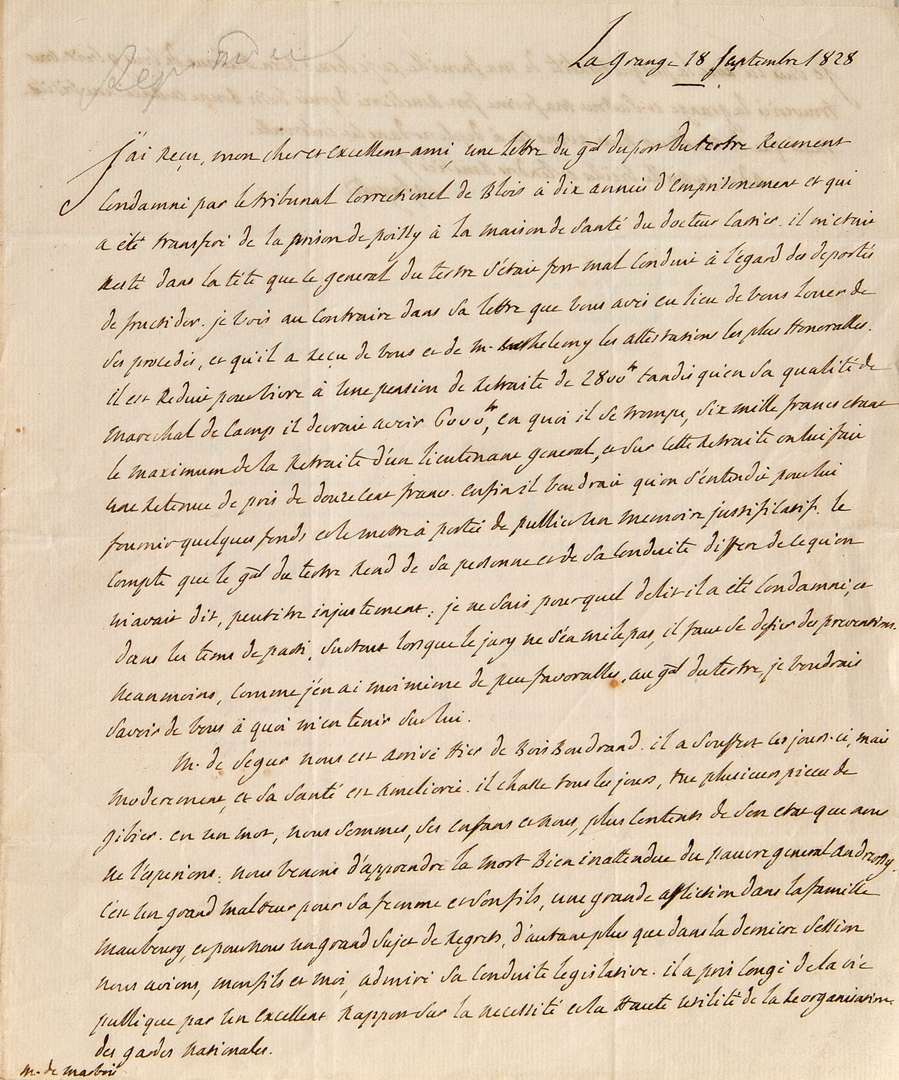 Repondu
La Grange 18 Septembre 1828
J'ai Reçu, mon cher et excellent ami, une lettre du gal duport Dutertre Recement
Condamné par le tribunal Correctionel de Blois à dix années d'Emprisonement et qui
a été transferé de la prison de poissy à la maison de Santé du docteur Cartier. il m'etait
Resté dans la tête que le general du tertre S'était fort mal Conduit à l'egard des deportés
de fructidor. je vois au Contraire dans Sa lettre que vous avés eu lieu de vous louer de
Ses procedés, et qu'il a Reçu de vous et de m. Barthelemy les attestations les plus Honorables.
il est Reduit pour vivre à Une pension de Retraite de 2800 tt tandis qu'en Sa qualité de
marechal de Camp il devrait avoir 6000 tt, en quoi il Se trompe, Six mille francs etant
le maximum de la Retraite d'un lieutenant general, et Sur Cette Retraite on lui fait
une Retenue de près de douze cent francs. enfin il voudrait qu'on S'entendit pour lui
fournir quelques fonds et le mettre à portée de publier Un memoire justificatif. le
Compte que le gal du tertre Rend de Sa personne et de Sa Conduite differe de ce qu'on
m'avait dit, peutêtre injustement: je ne Sais pour quel delit il a été Condamné, et
dans les tems de parti, Surtout lorsque le jury ne S'en mile pas, il faut Se defier des preventions.
Neanmoins, comme j'en ai moi même de peu favorables, au gal du tertre, je voudrais
Savoir de vous à quoi m'en tenir Sur lui.
M. de Segur nous est arrivé Hier de Bois Boudrand. il a Souffert ces jours-ci, mais
moderement, et Sa Santé est Ameliorée. il chasse tous les jours, tue plusieurs pieces de
gibier. en un mot, nous Sommes, Ses enfans et nous, plus Contents de Son etat que nous
ne l'esperions. nous venons d'apprendre la mort Bien inattendue du pauvre general andreossy.
C'est Un grand malheur pour Sa femme et Son fils, une grande affliction dans la famille
Maubourg, et pour nous Un grand Sujet de Regrets, d'autant plus que dans la derniere Session
nous avions, mon fils et moi, admiré Sa Conduite legislative. il a pris congé de la vie
publique par Un excellent Rapport Sur la necessité et la Haute utilité de la Reorganisation
des gardes nationales.
m. de marbois